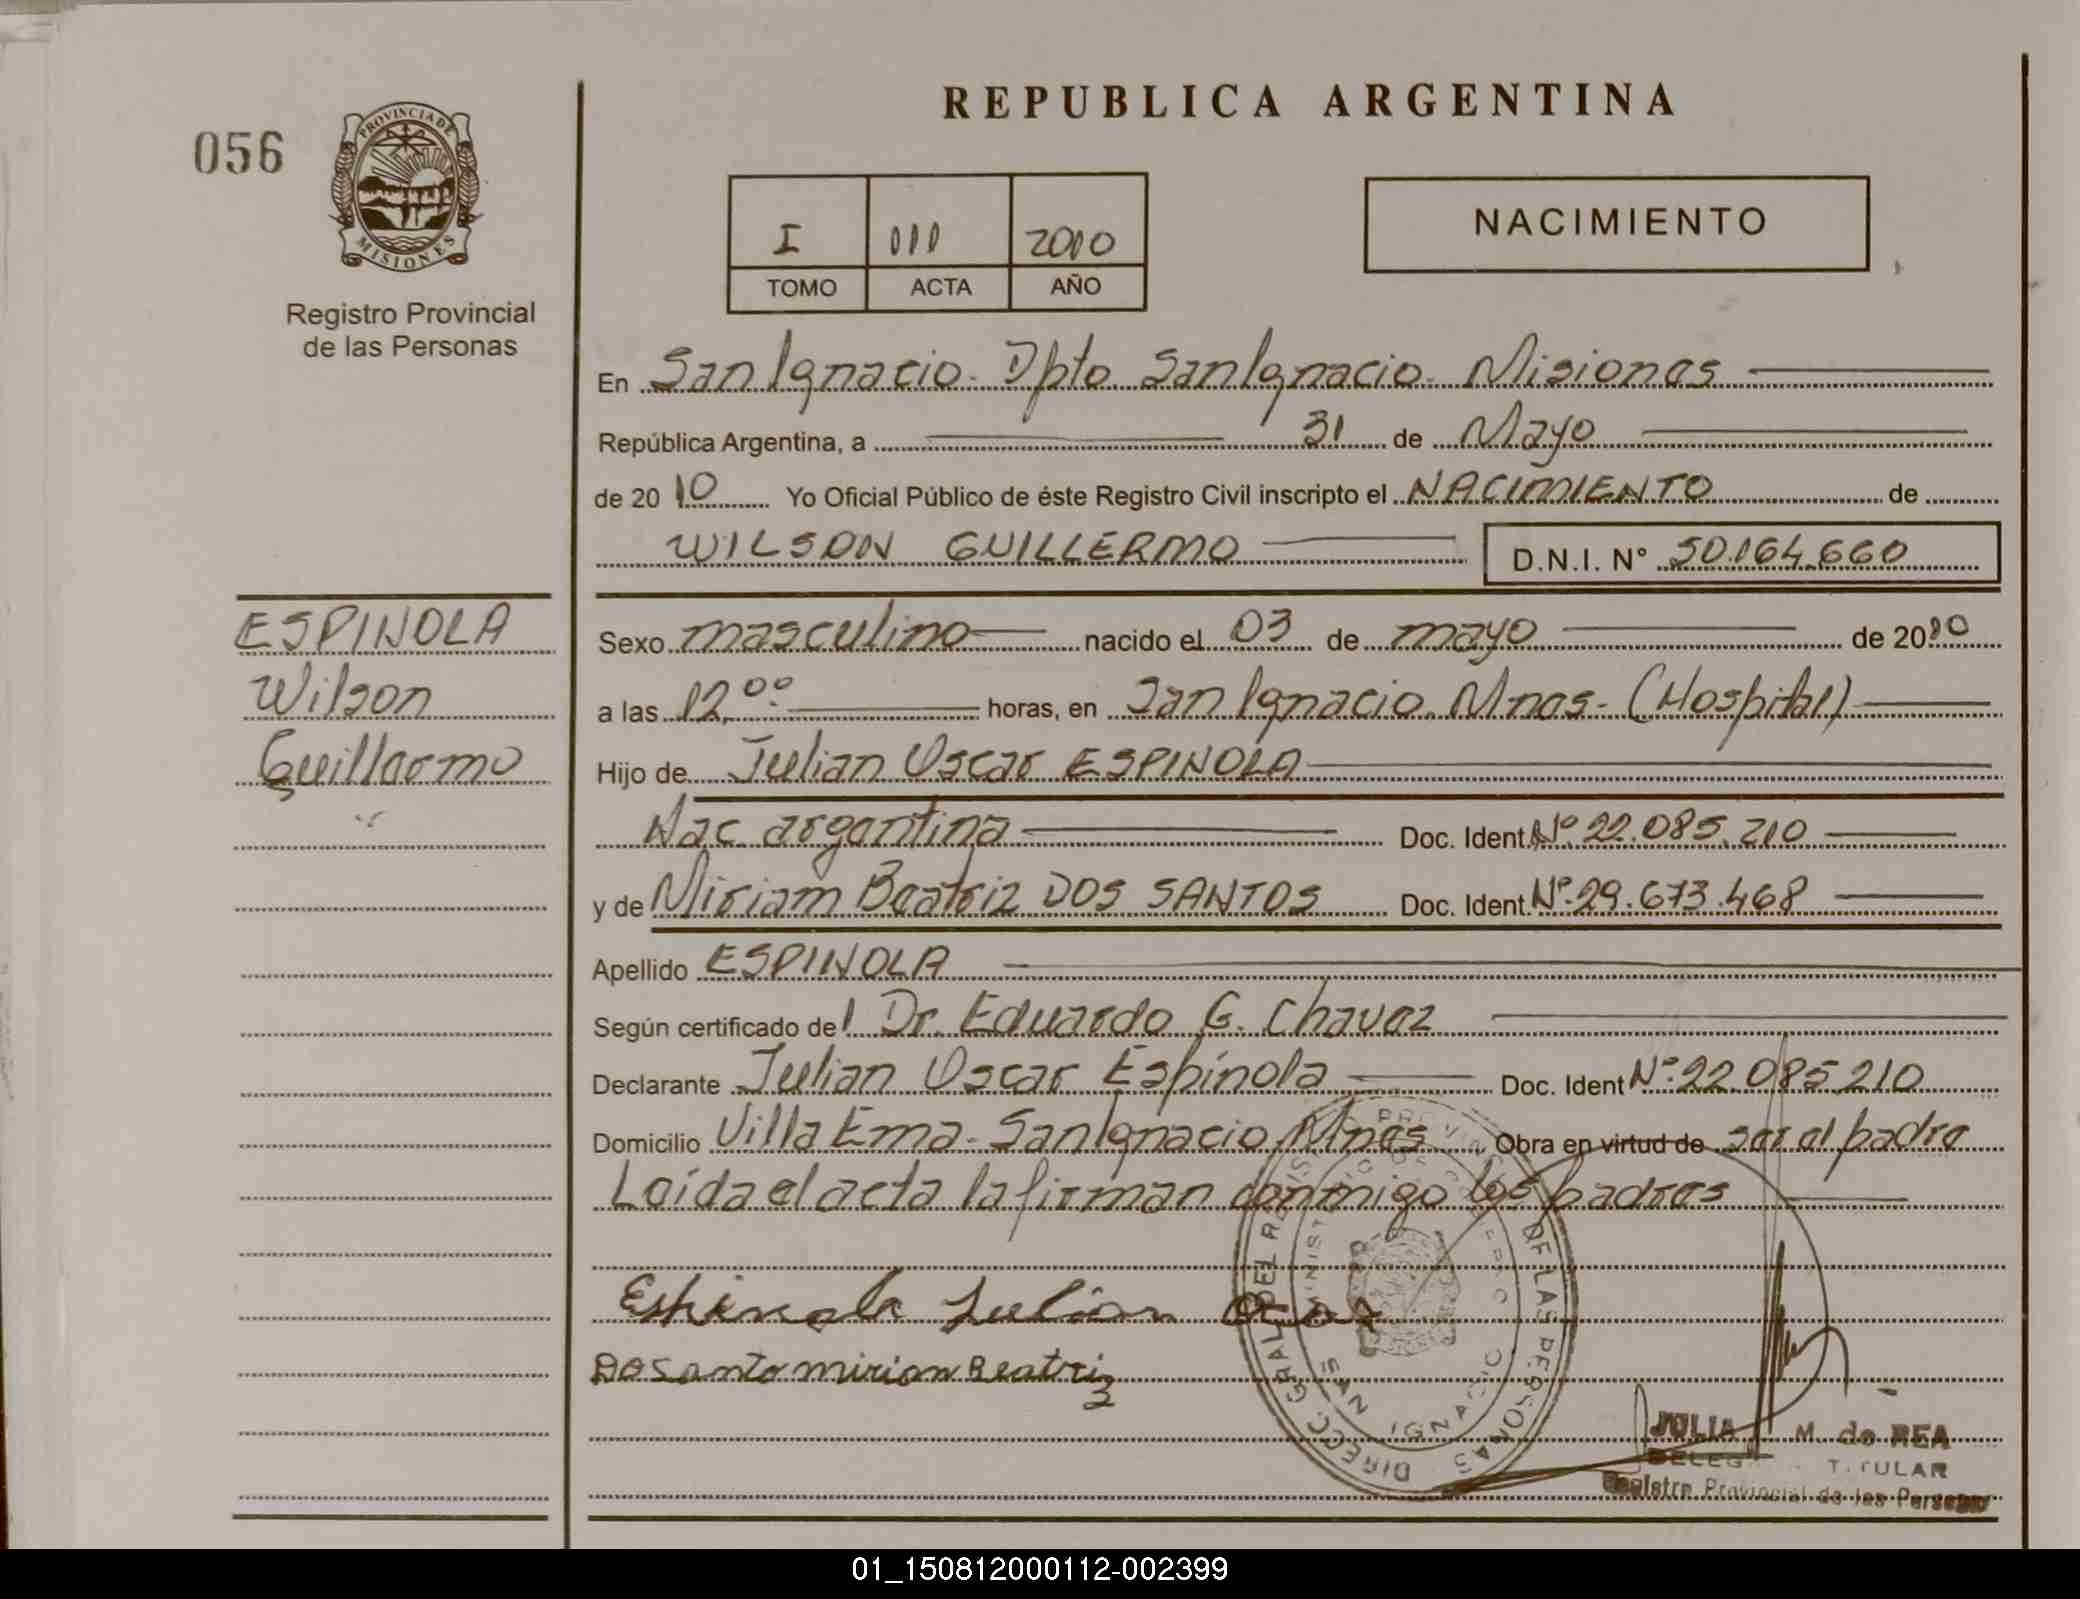 REPUBLICA ARGENTINA
056
PROVINCIA DE
MISIONES
Registro Provincial
de las Personas
I 111 2010
TOMO ACTA AÑO
NACIMIENTO
En San Ignacio. Dpto San Ignacio. Misiones
República Argentina, a 31 de Mayo
de 2010 Yo Oficial Público de éste Registro Civil inscripto el NACIMIENTO de
WILSON GUILLERMO D.N.I. N° 50.164.660
ESPINOLA
Wilson
Guillermo
Sexo masculino nacido el 03 de mayo de 2010
a las 12,00 horas, en San Ignacio. Mnes. (Hospital)
Hijo de Julian Oscar ESPINOLA
Nac argentina Doc. Ident. Nº 22.085.210
y de Miriam Beatriz DOS SANTOS Doc. Ident. Nº 29.673.468
Apellido ESPINOLA
Según certificado del Dr. Eduardo G. Chavez
Declarante Julian Oscar Espínola Doc. Ident Nº 22.085.210
Domicilio Villa Ema. San Ignacio Mnes Obra en virtud de ser el padre
Leída el acta la firman conmigo los padres
Espinola Julian
Do Santo Mirian Beatriz
DIRECC GRAL DEL REGISTRO PROVINCIAL DE LAS PERSONAS
MINISTERIO DE GOBIERNO
SAN IGNACIO
JULIA M. de REA
TITULAR
Registro Provincial de las Personas
01_150812000112-002399